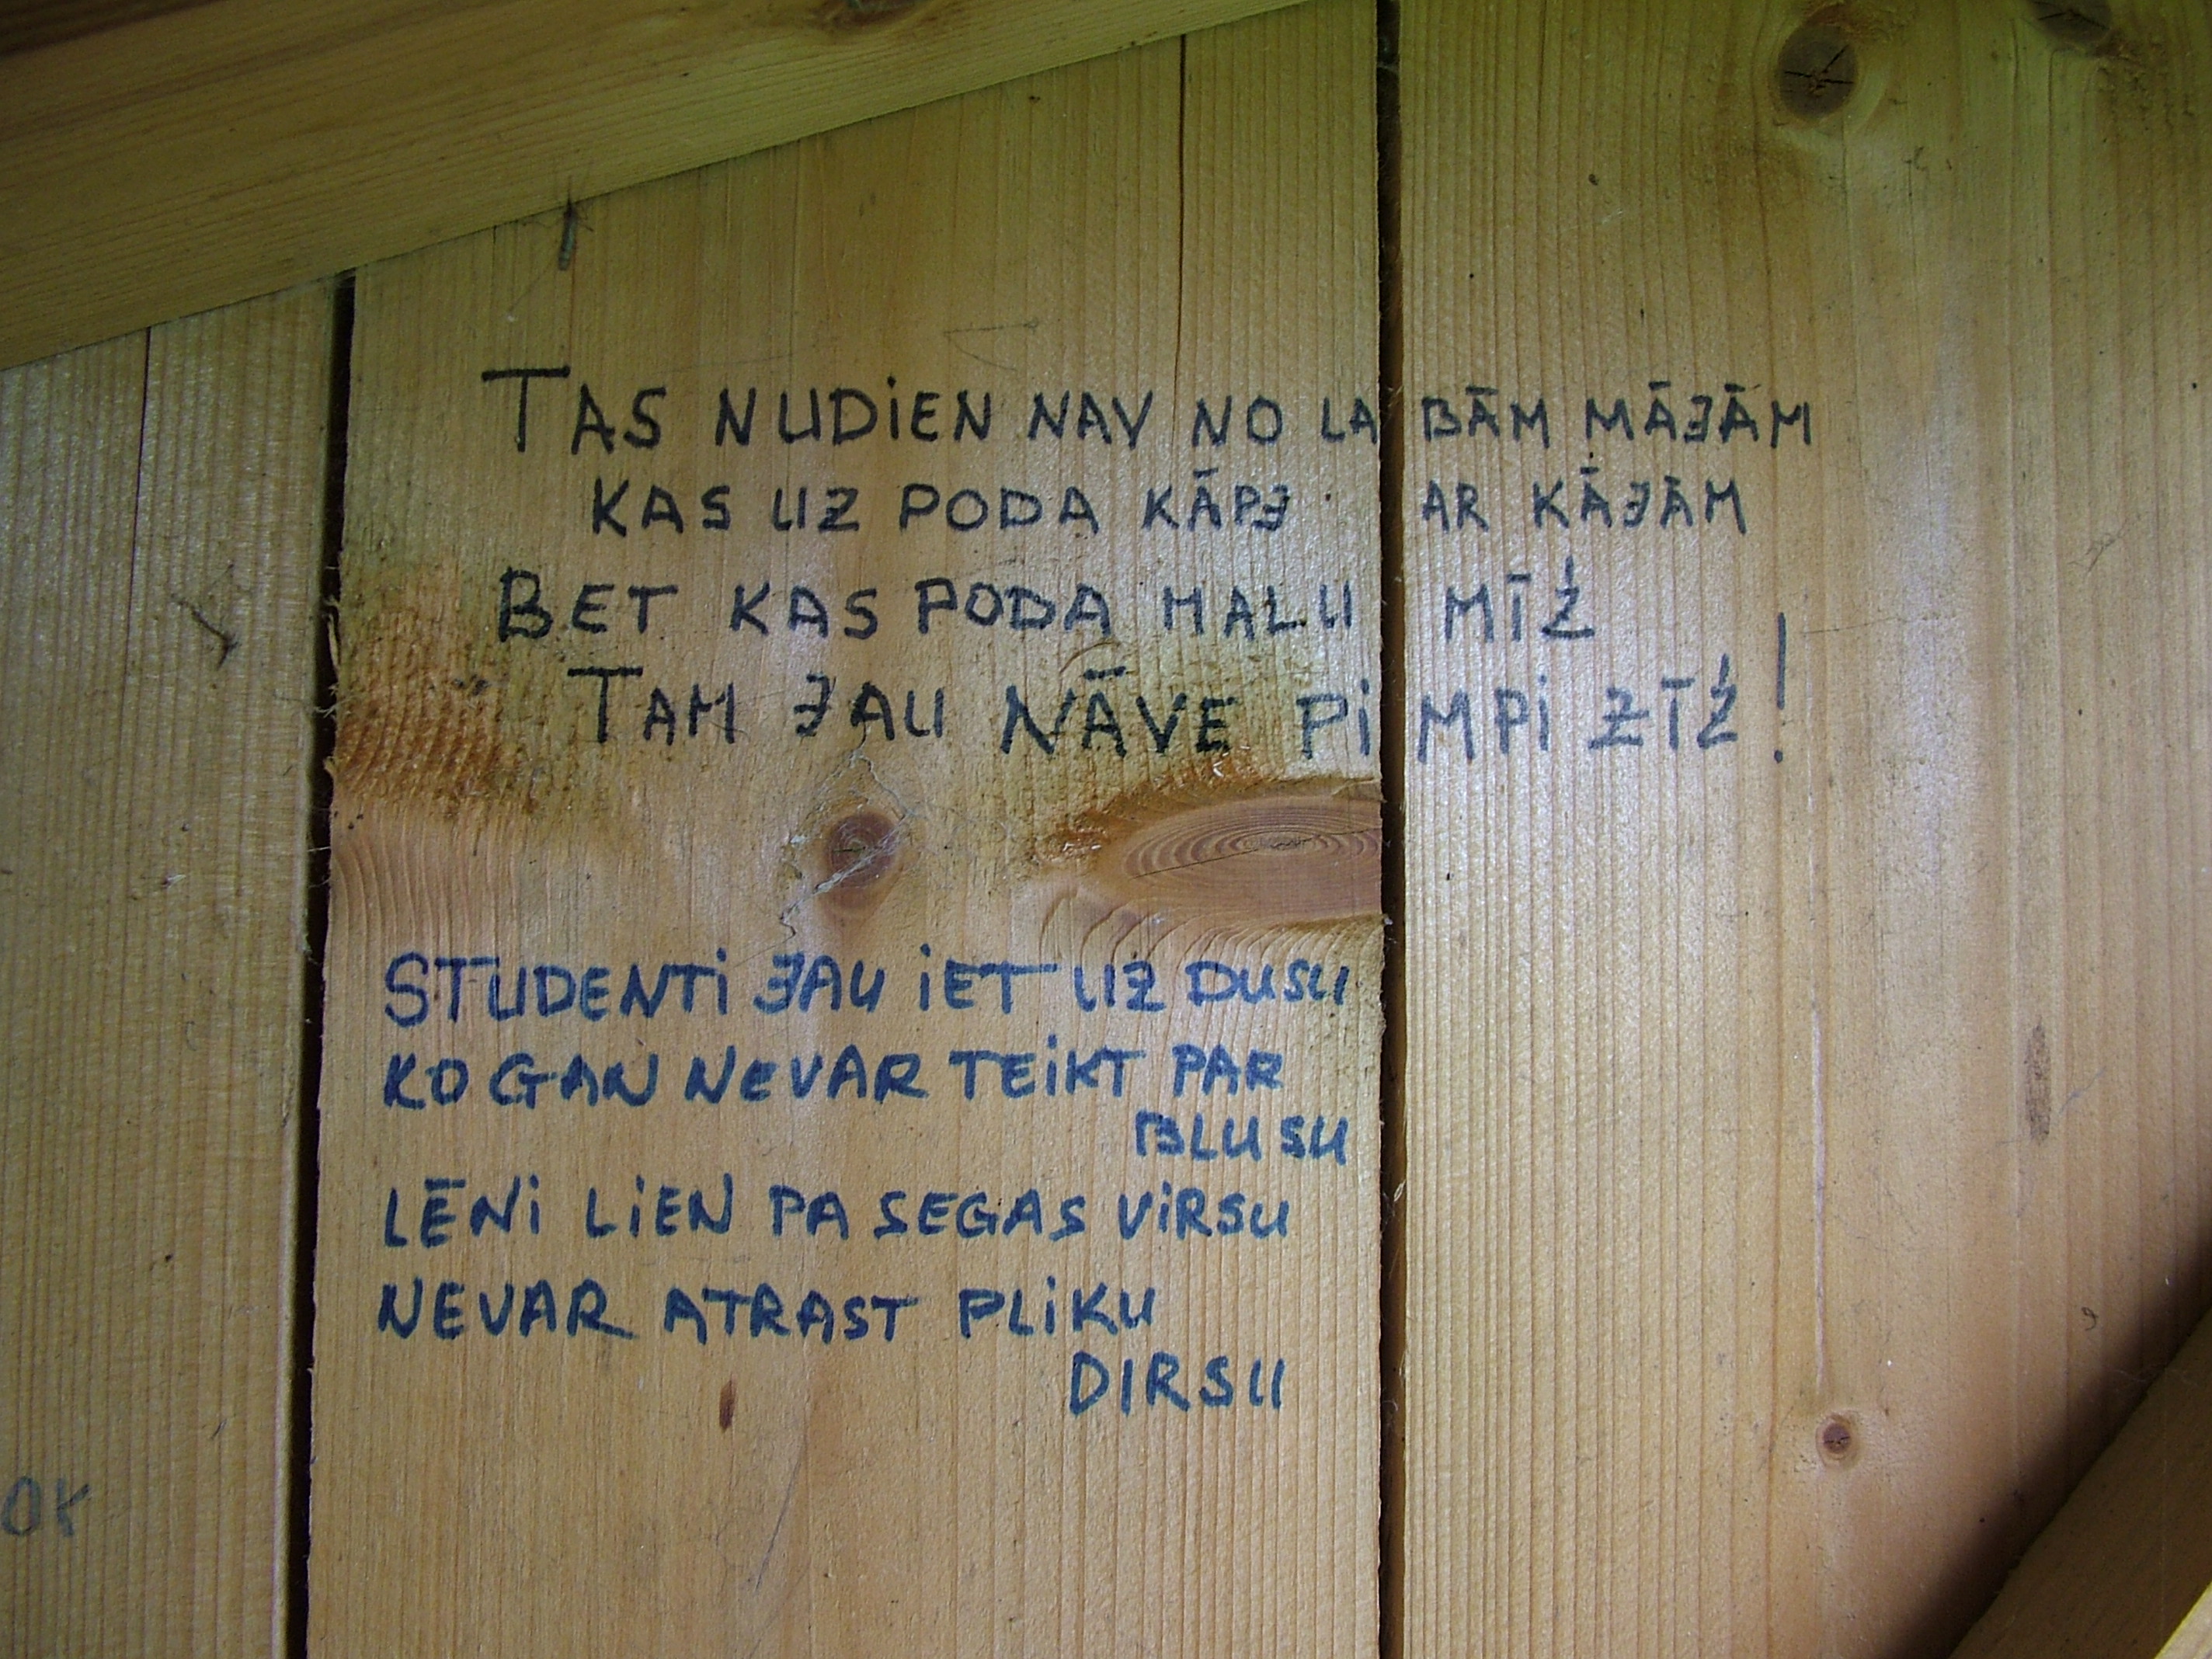 TAS NUDiEN NAV NO LABĀM MĀJĀM
KAS UZ PODA KĀPJ AR KĀJĀM
BET KAS PODA MALU MĪŽ
TAM JAU NĀVE PiMPi ZĪŽ!
STUDENTi JAU iET UZ DUSU
KO GAN NEVAR TEiKT PAR
BLUSU
LĒNi LiEN PA SEGAS ViRSU
NEVAR ATRAST PLiKU
DIRSU
OK